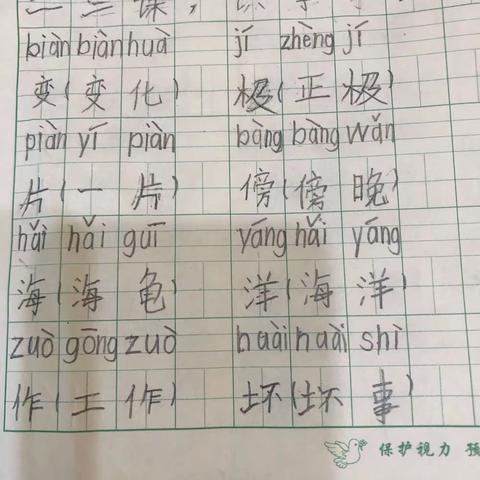 课，
biàn biàn huà jī zhèng jī
变(变化) 极(正极)
piàn yī piàn bàng bàng wǎn
片(一片) 傍(傍晚)
hǎi hǎi guī yáng hǎi yáng
海(海龟) 洋(海洋)
zuò gōng zuò huài huài shì
作(工作) 坏(坏事)
保护视力 预